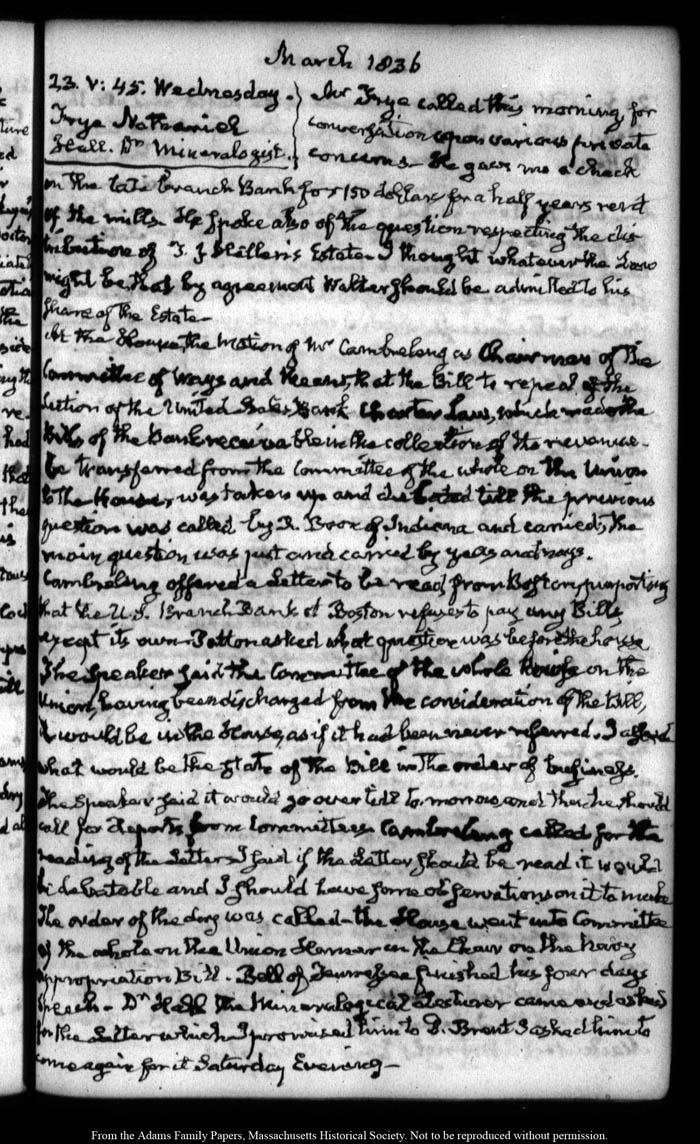 March 1836
23. V: 45. Wednesday.
Frye Nathaniel
Hall. Dr Mineralogist.
Mr Frye called this morning for
conversation upon various private
concerns. He gave me a check
on the late Branch Bank for 150 dollars for a half years rent
of the mills. He spoke also of the question respecting the dis
tribution of J. J Hellen's Estate. I thought whatever the Law
might be, that by agreement Walter should be admitted to his
share of the Estate—
At the House, the Motion of Mr Cambreleng as Chairman of the
Committee of Ways and Means, that the Bill to repeal of the
section of the United States Bank Charter Law, which made the
Bills of the Bank receivable in the collection of the revenue.
be transferred from the Committee of the whole on the Union
to the House, was taken up and debated till the previous
question was called by R. Boon of Indiana and carried, the
main question was put and carried by yeas and nays.
Cambreleng offered a Letter to be read from Boston, purporting
that the U.S. Branch Bank at Boston refuses to pay any Bills
except its own. Patton asked what question was before the house
The Speaker said the Committee of the whole House on the
Union, having been discharged from the consideration of the Bill,
it would be in the House, as if it had been never referred. I asked
what would be the state of the Bill in the order of business.
The Speaker said it would go over till to-morrow and then he should
call for Reports from Committees. Cambreleng called for the
reading of the Letter. I said if the Letter should be read it would
be debatable and I should have some observations on it to make
The order of the day was called—the House went into Committee
of the whole on the Union in the Chair on the Navy
appropriation Bill. Bell of Tennessee finished his four days
speech. Dr Hall the Mineralogical Lecturer came and asked
for the Letter which I promised him to D. Brent I asked him to
come again for it Saturday Evening—
From the Adams Family Papers, Massachusetts Historical Society. Not to be reproduced without permission.